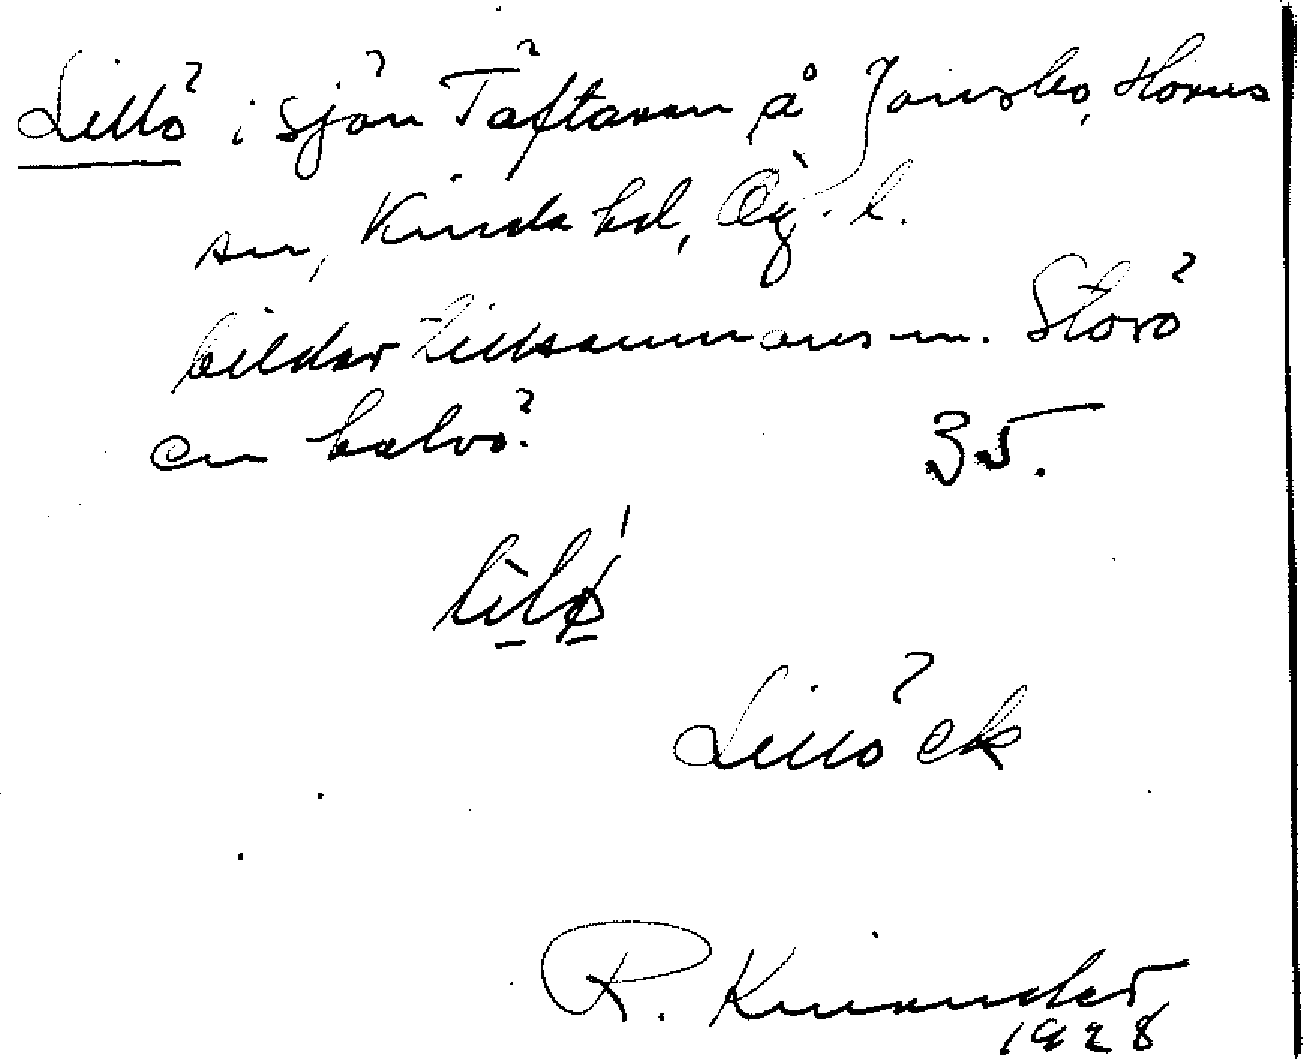 Lillö i sjön Täftaren å Jonsbo, Horns
sn, Kinda hd, Ög. l.
bildar tillsammans m. Storö
en halvö.
35.
lìlǿ
Lillöck
R. Kinander
1928